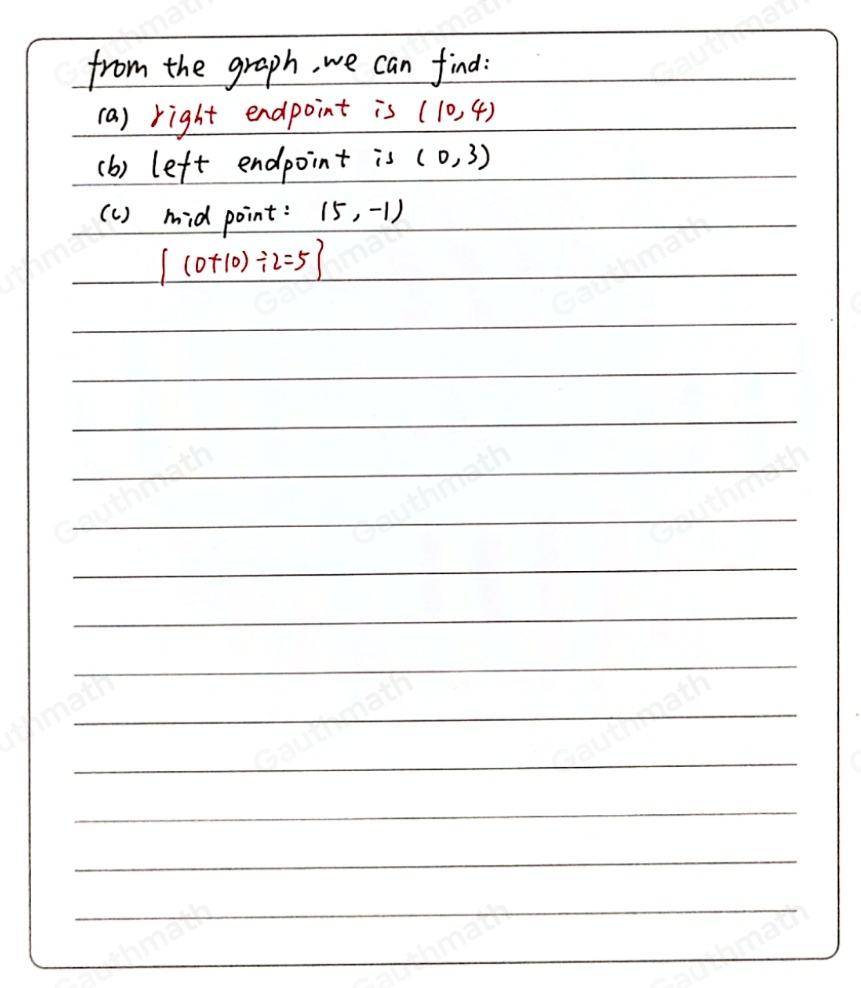 from the graph, we can find:
(a) right endpoint is (10,4)
(b) left endpoint is (0,3)
(c) mid point: (5,-1)
[(0+10)÷2=5]
Gauthmath